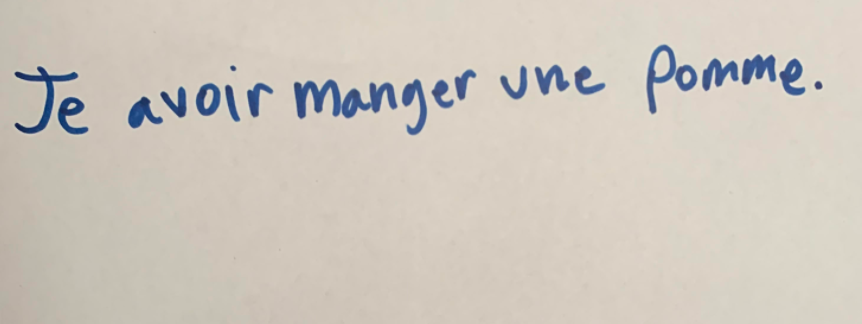 Je avoir manger une pomme.